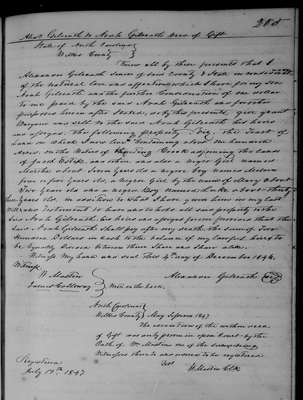 205
Alexr Gilreath to Noah Gilreath Deed of Gift
State of North Carolina
Wilkes County
Know all by these presents that I
Alexander Gilreath senr of said County & State in consideration
of the natural love and affection which I have for my son
Noah Gilreath and the further consideration of one dollar
to me paid by the said Noah Gilreath and for other
purposes herein after stated, do by these presents give grant
Bargain and sell to the said Noah Gilreath his heirs
and assigns the following property Viz. The Tract of
Land on which I now live Containing about one hundred
acres on the waters of Creek adjoining the lands
of Jacob and others and also a negro Girl named
Martha about years old a negro boy named
four or five years old, a negro Girl by the name of about
Two years old and a negro Boy named Luke about thirty
years old, in addition to what I have given him in my last
Will and Testament to have and to hold all said property to the
said Noah Gilreath his heirs and assigns forever provided that the
said Noah Gilreath shall pay after my death the sum of Two
Hundred Dollars in Cash to the balance of my lawful heirs to
be equally divided between them Share and Share alike
Witness My hand and seal this 4th day of December 1846
Witness
W. Mastin Alexander Gilreath
James Calloway
North Carolina
Wilkes County May Sessions 1847
The execution of the within deed
of Gift was duly proven in open Court by the
Oath of Wm Mastin one of the subscribing
Witnesses thereto and ordered to be registered
Test
Registered
July 19th 1847. W Mastin Clk